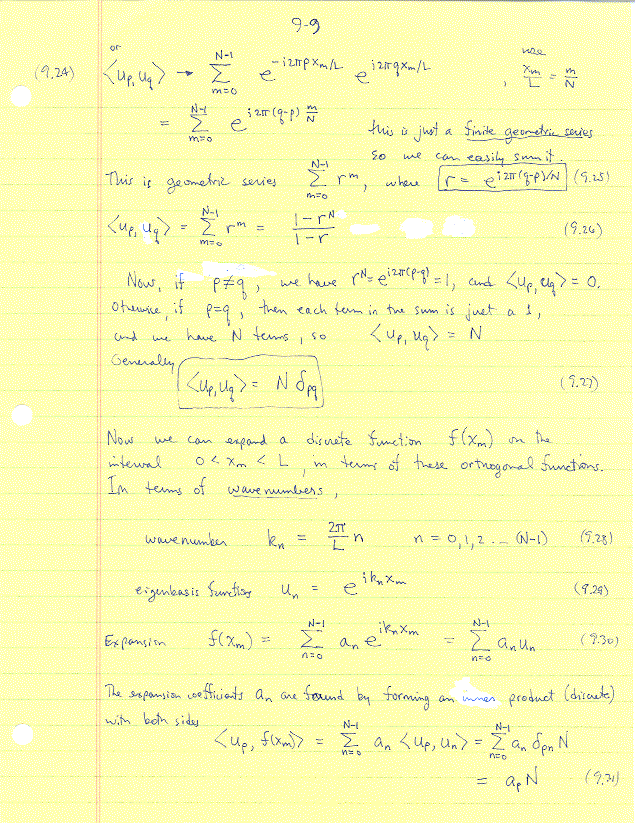 9-9
or
(9.24) <u_p, u_q> → Σ_{m=0}^{N-1} e^{-i2πp x_m/L} e^{i2πq x_m/L} , use x_m/L = m/N
= Σ_{m=0}^{N-1} e^{i2π(q-p) m/N}
this is just a finite geometric series
so we can easily sum it.
This is geometric series Σ_{m=0}^{N-1} r^m, where r = e^{i2π(q-p)/N} (9.25)
<u_p, u_q> = Σ_{m=0}^{N-1} r^m = (1-r^N)/(1-r) (9.26)
Now, if p≠q, we have r^N = e^{i2π(p-q)} = 1, and <u_p, u_q> = 0.
Otherwise, if p=q, then each term in the sum is just a 1,
and we have N terms, so <u_p, u_q> = N
Generally
<u_p, u_q> = N δ_{pq} (9.27)
Now we can expand a discrete function f(x_m) on the
interval 0 < x_m < L, in terms of these orthogonal functions.
In terms of wavenumbers,
wavenumber k_n = 2π/L n n = 0, 1, 2 ... (N-1) (9.28)
eigenbasis function u_n = e^{i k_n x_m} (9.29)
Expansion f(x_m) = Σ_{n=0}^{N-1} a_n e^{i k_n x_m} = Σ_{n=0}^{N-1} a_n u_n (9.30)
The expansion coefficients a_n are found by forming an inner product (discrete)
with both sides
<u_p, f(x_m)> = Σ_{n=0}^{N-1} a_n <u_p, u_n> = Σ_{n=0}^{N-1} a_n δ_{pn} N
= a_p N (9.31)